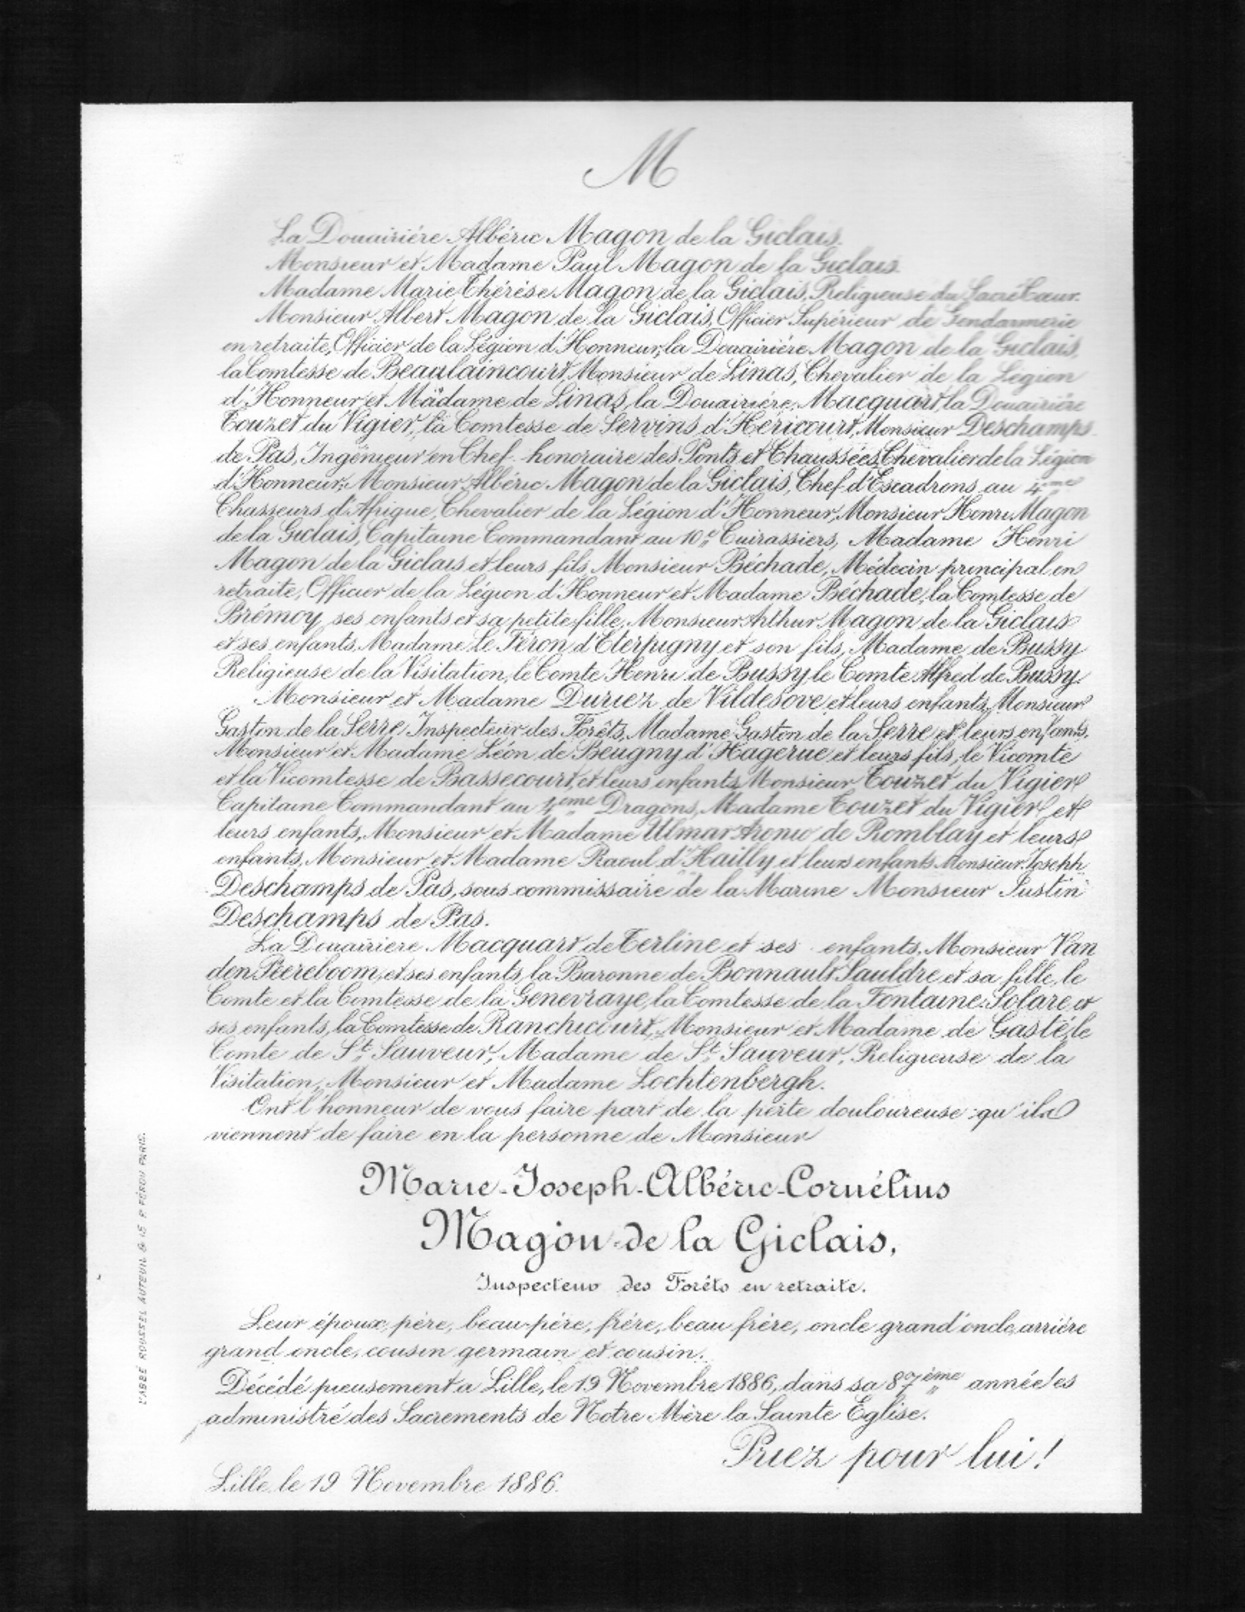 M
La Douairière Albéric Magon de la Giclais.
Monsieur et Madame Paul Magon de la Giclais.
Madame Marie Thérèse Magon de la Giclais, Religieuse du Sacré Cœur.
Monsieur Albert Magon de la Giclais, Officier Supérieur de Gendarmerie
en retraite, Officier de la Légion d'Honneur, la Douairière Magon de la Giclais,
la Comtesse de Beaulaincourt, Monsieur de Linas, Chevalier de la Légion
d'Honneur, et Madame de Linas, la Douairière, Macquart, la Douairière
Touzet du Vigier, la Comtesse de Servins d'Héricourt, Monsieur Deschamps
de Pas, Ingénieur en Chef honoraire des Ponts et Chaussées, Chevalier de la Légion
d'Honneur, Monsieur Albéric Magon de la Giclais, Chef d'Escadrons au 4ème
Chasseurs d'Afrique, Chevalier de la Légion d'Honneur, Monsieur Henri Magon
de la Giclais, Capitaine Commandant au 10e Cuirassiers, Madame Henri
Magon de la Giclais et leurs fils, Monsieur Béchade, Médecin principal en
retraite, Officier de la Légion d'Honneur et Madame Béchade, la Comtesse de
Brémoy, ses enfants et sa petite fille, Monsieur Arthur Magon de la Giclais
et ses enfants, Madame Le Féron d'Eterpigny et son fils, Madame de Bussy
Religieuse de la Visitation, le Comte Henri de Bussy, le Comte Alfred de Bussy.
Monsieur et Madame Duriez de Vildesove et leurs enfants, Monsieur
Gaston de la Serre, Inspecteur des Forêts, Madame Gaston de la Serre et leurs enfants,
Monsieur et Madame Léon de Beugny d'Hagerue et leurs fils, le Vicomte
et la Vicomtesse de Bassecourt, et leurs enfants, Monsieur Touzet du Vigier
Capitaine Commandant au ème Dragons, Madame Touzet du Vigier et
leurs enfants, Monsieur et Madame de Romblay et leurs
enfants, Monsieur et Madame Raoul d'Hailly et leurs enfants, Monsieur Joseph
Deschamps de Pas, sous commissaire de la Marine Monsieur Justin
Deschamps de Pas.
La Douairière Macquart de Terline et ses enfants, Monsieur Van
den Peereboom, et ses enfants, la Baronne de Bonnault Sauldre et sa fille, le
Comte et la Comtesse de la Genevraye, la Comtesse de la Fontaine-Solare et
ses enfants, la Comtesse de Ranchicourt, Monsieur et Madame de Gasté, le
Comte de St Sauveur, Madame de St Sauveur, Religieuse de la
Visitation, Monsieur et Madame Lochtenbergh.
Ont l'honneur de vous faire part de la perte douloureuse qu'ils
viennent de faire en la personne de Monsieur
Marie-Joseph-Albéric-Cornélius
Magon de la Giclais,
Inspecteur des Forêts en retraite.
Leur époux, père, beau-père, frère, beau frère, oncle grand'oncle, arrière
grand oncle, cousin germain et cousin.
Décédé pieusement a Lille, le 19 Novembre 1886, dans sa 87ème année es
administré des Sacrements de Notre Mère la Sainte Eglise.
Priez pour lui!
Lille, le 19 Novembre 1886.
L'ABBÉ ROUSSEL AUTEUIL & 15 R FÉROU PARIS.